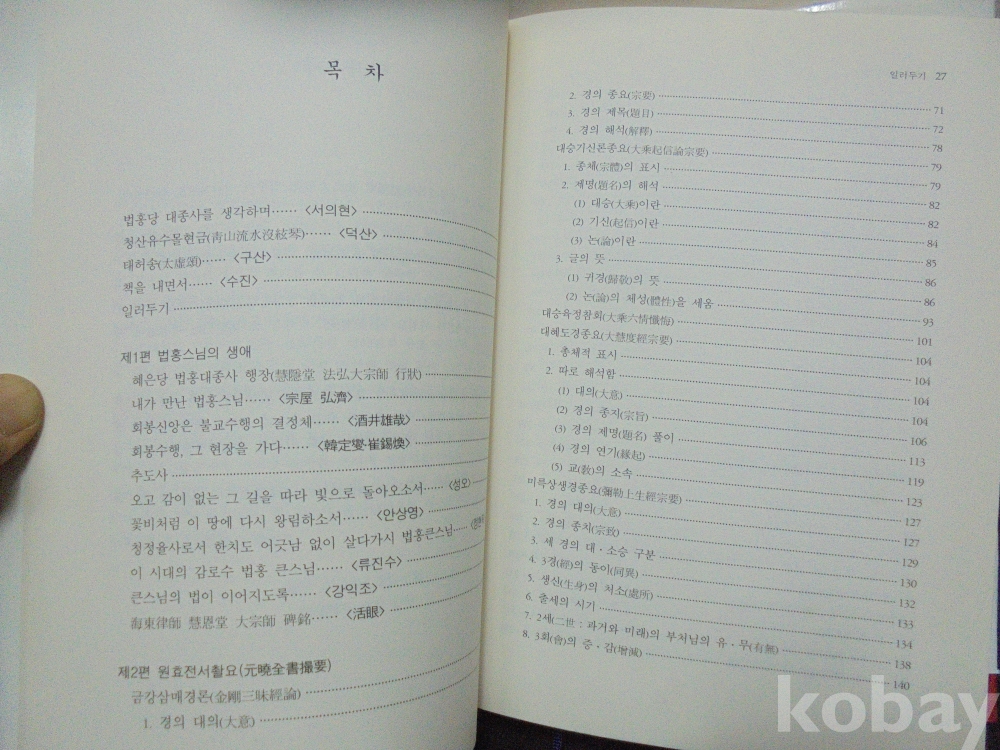 목 차
법홍당 대종사를 생각하며…… <서의현>
청산유수몰현금(靑山流水沒絃琴)…… <덕산>
태허송(太虛頌)…… <구산>
책을 내면서…… <수진>
일러두기
제1편 법홍스님의 생애
혜은당 법홍대종사 행장(慧隱堂 法弘大宗師 行狀)
내가 만난 법홍스님…… <宗屋 弘濟>
회봉신앙은 불교수행의 결정체…… <酒井雄哉>
회봉수행, 그 현장을 가다…… <韓定燮·崔錫煥>
추도사
오고 감이 없는 그 길을 따라 빛으로 돌아오소서…… <성오>
꽃비처럼 이 땅에 다시 왕림하소서…… <안상영>
청정율사로서 한치도 어긋남 없이 살다가시 법홍큰스님……
이 시대의 감로수 법홍 큰스님…… <류진수>
큰스님의 법이 이어지도록…… <강익조>
海東律師 慧恩堂 大宗師 碑銘…… <活眼>
제2편 원효전서촬요(元曉全書撮要)
금강삼매경론(金剛三昧經論)
1. 경의 대의(大意)
일러두기 27
2. 경의 종요(宗要) 71
3. 경의 제목(題目) 72
4. 경의 해석(解釋) 78
대승기신론종요(大乘起信論宗要) 79
1. 종체(宗體)의 표시 79
2. 제명(題名)의 해석 82
(1) 대승(大乘)이란 82
(2) 기신(起信)이란 84
(3) 논(論)이란 85
3. 글의 뜻 86
(1) 귀경(歸敬)의 뜻 86
(2) 논(論)의 체성(體性)을 세움 93
대승육정참회(大乘六情懺悔) 101
대혜도경종요(大慧度經宗要) 104
1. 총체적 표시 104
2. 따로 해석함 104
(1) 대의(大意) 104
(2) 경의 종지(宗旨) 106
(3) 경의 제명(題名) 풀이 113
(4) 경의 연기(緣起) 119
(5) 교(敎)의 소속 123
미륵상생경종요(彌勒上生經宗要) 127
1. 경의 대의(大意) 127
2. 경의 종치(宗致) 129
3. 세 경의 대·소승 구분 130
4. 3경(經)의 동이(同異) 132
5. 생신(生身)의 처소(處所) 133
6. 출세의 시기 134
7. 2세(二世 : 과거와 미래)의 부처님의 유·무(有無) 138
8. 3회(會)의 증·감(增減) 140
kobay